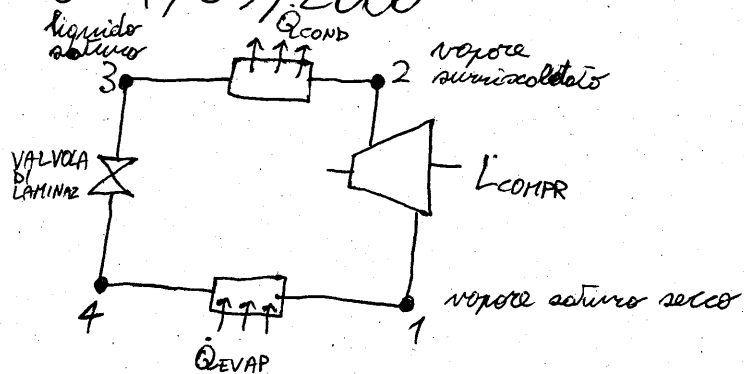 liquido
saturo
Q̇COND
3
2
vapore
surriscaldato
VALVOLA
DI
LAMINAZ
L̇COMPR
4
1
vapore saturo secco
Q̇EVAP